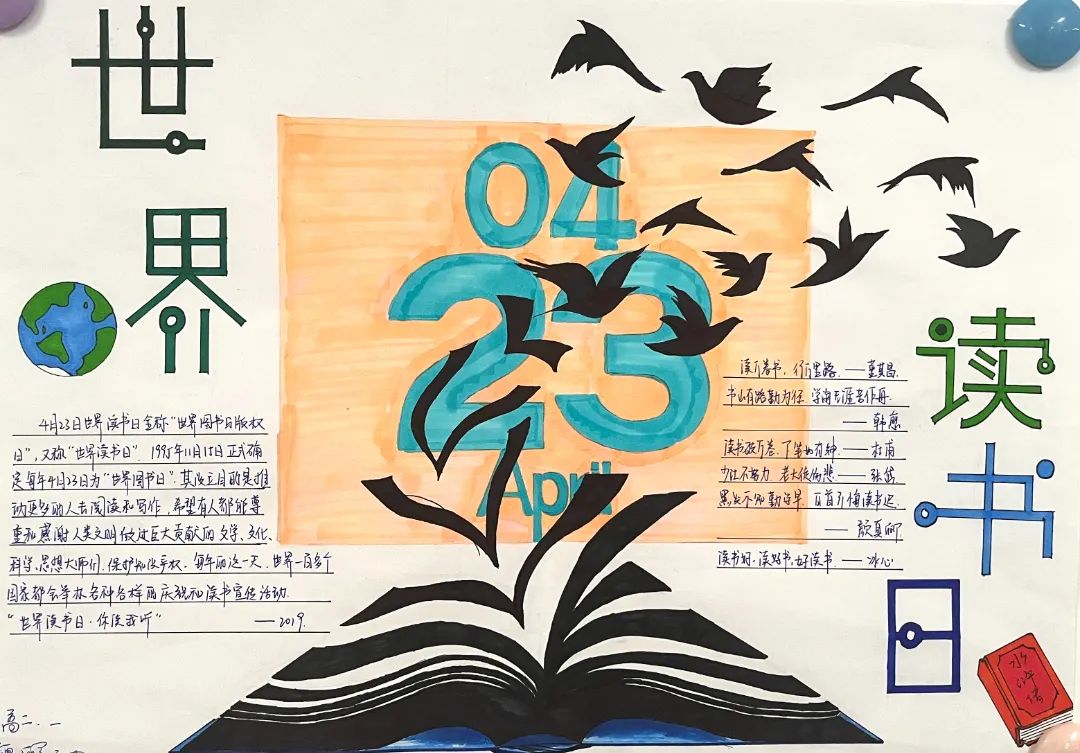 世界
读书日
04
23
April
4月23日世界读书日全称"世界图书与版权
日"，又称"世界读书日" 1995年11月15日正式确
定每年4月23日为"世界图书日"，其设立目的是推
动更多的人去阅读和写作，希望有人都能尊
重和感谢人类文明做过巨大贡献的文学、文化、
科学、思想大师们，保护知识产权．每年的这一天，世界一百多个
国家都会举办各种各样的庆祝和读书宣传活动．
"世界读书日·你读我听" ——2019.
读万卷书，行万里路．——董其昌．
书山有路勤为径 学海无涯苦作舟．
——韩愈
读书破万卷．下笔如有神．——杜甫
少壮不努力 老大徒伤悲 ——
黑发不知勤学早．白首方悔读书迟．
——颜真卿
读书好，读好书，好读书．——冰心
水浒传
高二．一